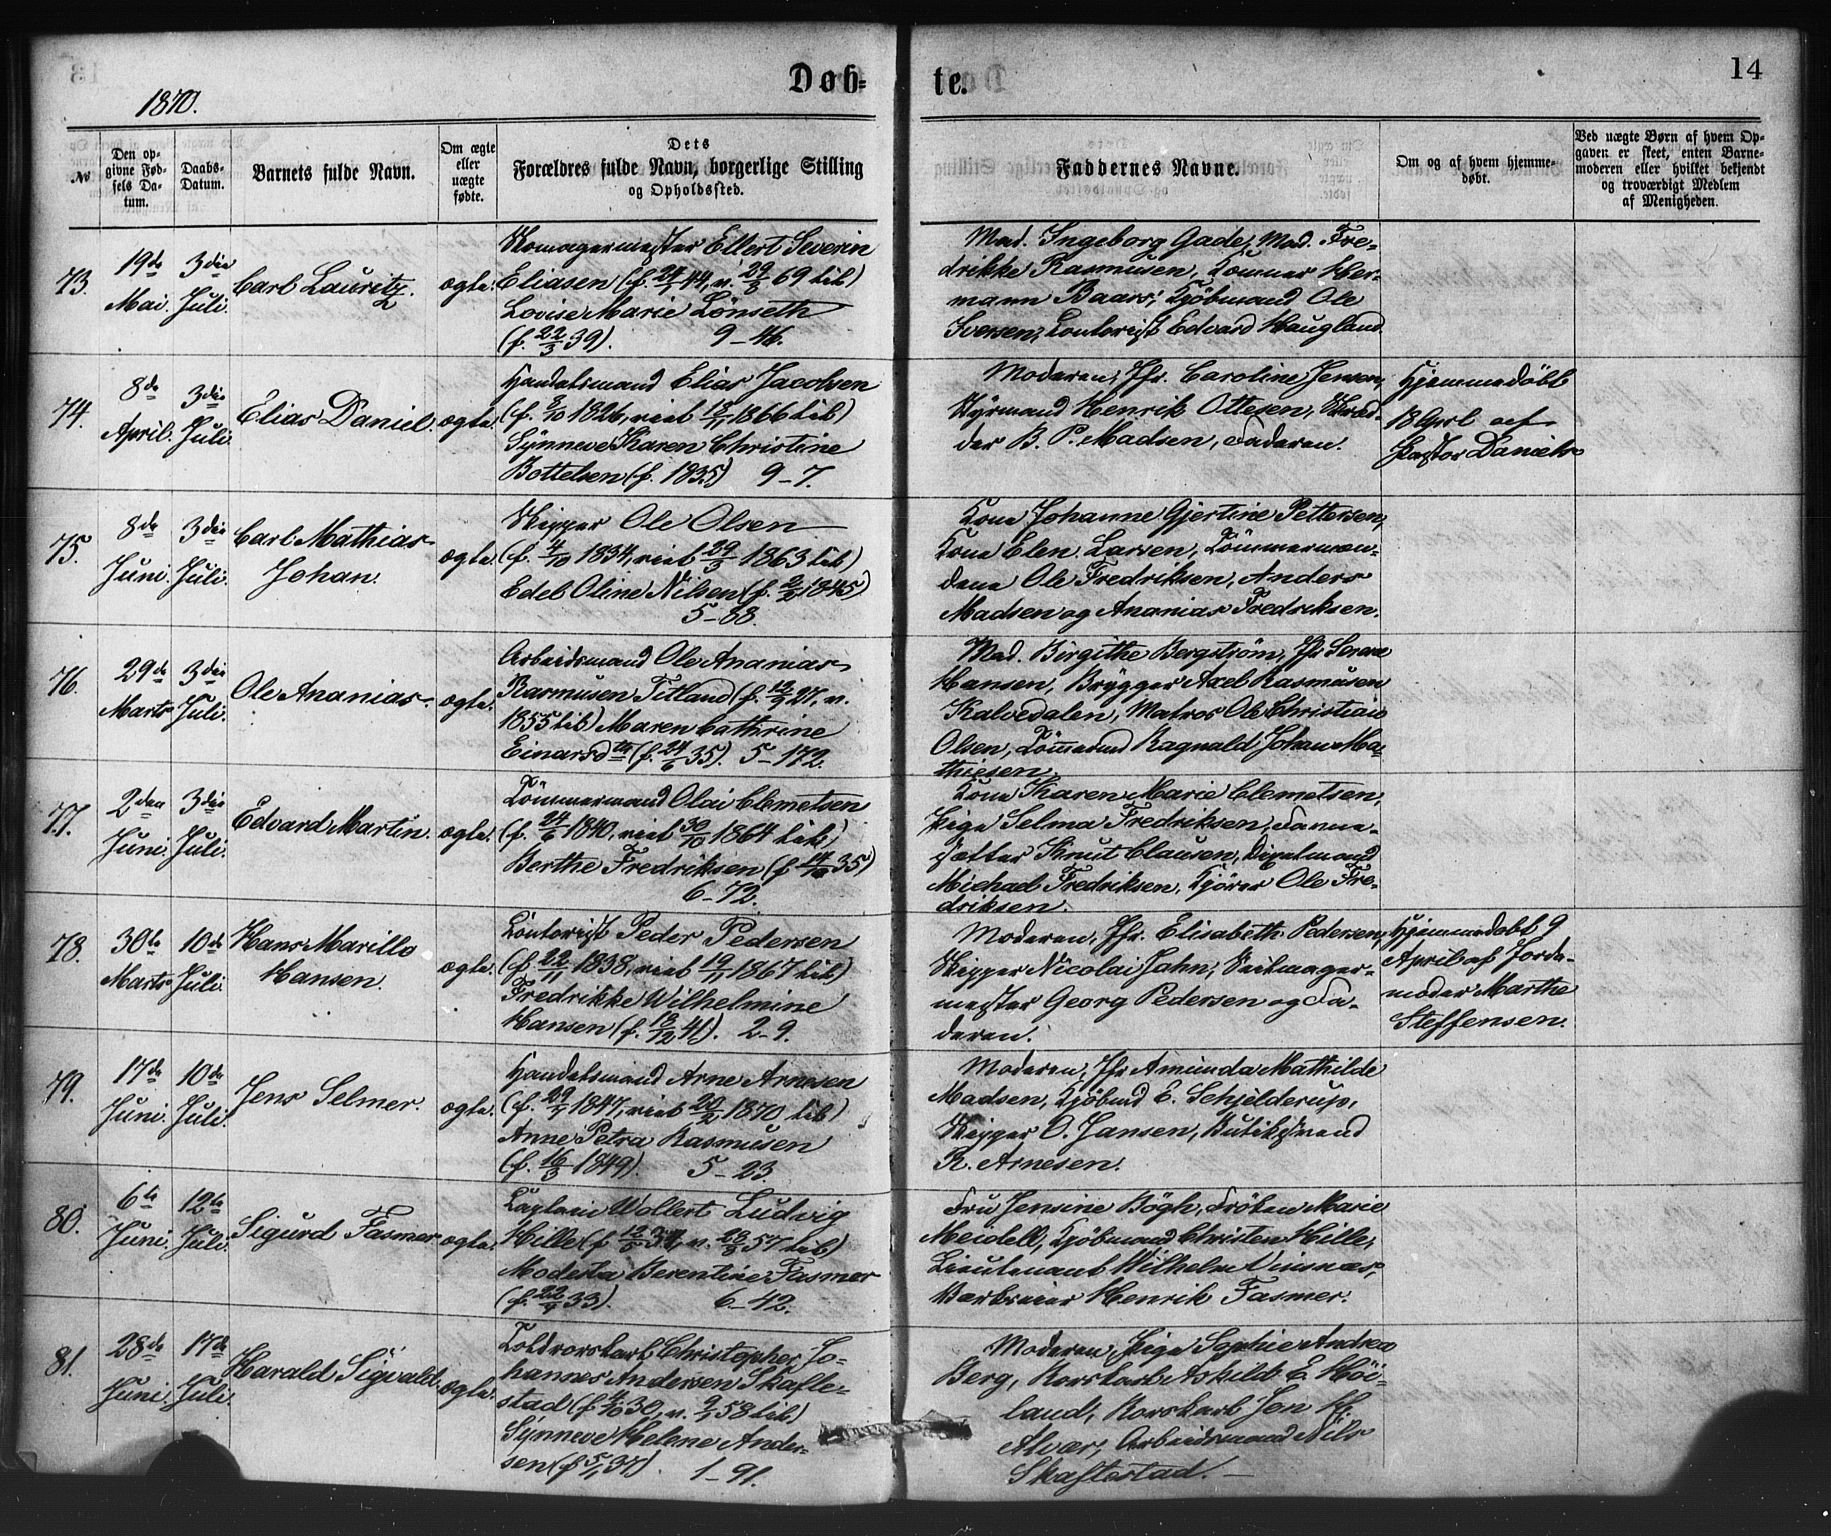 1870.
Døb-
te.
14
№
Den op-
givne Fød-
sels Da-
tum.
Daabs-
Datum.
Barnets fulde Navn.
Om ægte
eller
uægte
fødte.
Dets
Forældres fulde Navn, borgerlige Stilling
og Opholdssted.
Faddernes Navne.
Om og af hvem hjemme-
døbt.
Ved uægte Børn af hvem Op-
gaven er skeet, enten Barne-
moderen eller hvilket bekjendt
og troværdigt Medlem
af Menigheden.
73.
19de
Mai.
3die
Juli.
Carl Lauritz.
ægte.
Skomagermester Ellert Severin
Eliasen (f. 24/7 44, v. 29/8 69 til)
Lovise Marie Lönseth
(f. 22/3 39). 9-46.
Mad. Ingeborg Gade, Mad. Fre-
drikke Rasmusen, Her-
mann Baars, Kjöbmand Ole
Iversen, Contorist Edvard Haugland.
74.
8de
April.
3die
Juli.
Elias Daniel.
ægte.
Handelsmand Elias Jacobsen
(f. 8/10 1826, viet 18/1 1866 til)
Synneve Karen Christine
Bottelsen (f. 1835) 9-7.
Moderen, Jfr. Caroline Jensen,
Styrmand Henrik Ottesen, Skræd-
der B. P. Madsen, Faderen.
Hjemmedöbt
18 Apl af
Pastor Daniels
75.
8de
Juni.
3die
Juli.
Carl Mathias
Johan.
ægte.
Skipper Ole Olsen
(f. 4/10 1834, viet 29/3 1863 til)
Edel Oline Nilsen (f. 2/2 1845)
5-88.
Kone Johanne Gjertine Pettersen,
Kone Elen Larsen, Tömmermæn-
dene Ole Fredriksen, Anders
Madsen og Ananias Fredriksen.
76.
29de
Marts
3die
Juli.
Ole Ananias
ægte.
Arbeidsmand Ole Ananias
Rasmusen Titland (f. 12/9 27, v.
1855 til) Maren Cathrine
Einarsdtr (f. 24/6 35). 5-172.
Mad. Birgithe Bergström, Jfr
Hansen, Brygger Axel Rasmusen
Kalvedalen, Matros Ole Christian
Olsen, Tömmermd Ragnvald Johan Ma-
thiesen.
77.
2den
Juni.
3die
Juli.
Edvard Martin.
ægte.
Tömmermand Olai Clemetsen
(f. 24/6 1840, viet 30/10 1864 til)
Berthe Fredriksen (f. 35)
6-72.
Kone Karen Marie Clemetsen,
Pige Selma Fredriksen,
sætter Knut Clausen,
Michael Fredriksen, Kjörer Ole Fre-
driksen.
78.
30te
Marts
10de
Juli.
Hans Marillo
Hansen.
ægte.
Contorist Peder Pedersen
(f. 22/11 1838, viet 19/7 1867 til)
Fredrikke Wilhelmine
Hansen (f. 18/12 41). 2-9.
Moderen, Jfr. Elisabeth Pedersen,
Skipper Nicolai Jahn, Seilmager-
mester Georg Pedersen og Fa-
deren.
Hjemmedöbt 9
April af Jorde-
moder Marthe
Steffensen.
79.
17de
Juni.
10de
Juli.
Jens Selmer.
ægte.
Handelsmand Arne Arnesen
(f. 29/7 1847, viet 20/2 1870 til)
Anne Petra Rasmusen
(f. 16/3 1849). 5-23.
Moderen, Jfr Amunda Mathilde
Madsen, Kjöbmd E. Schjelderup,
Skipper O. Jansen, Butiksvend
R. Arnesen.
80.
6te
Juni.
12te
Juli.
Sigurd Fasmer
ægte.
Captain Wollert Ludvig
Hille (f. v. 57 til)
Modesta Berentine Fasmer
(f. 33). 6-42.
Fru Jensine Bögh, Fröken Marie
Meidell, Kjöbmand Christen Hille,
Lieutenant Wilhelm Vinsnæs,
Værkseier Henrik Fasmer.
81.
28de
Juni.
17de
Juli.
Harald Sigvald
ægte.
Toldrorskarl Christopher Jo-
hannes Andersen Skafte-
stad (f. 4/10 30, v. 9/1 58 til)
Synneve Helene Ander-
sen (f. 37). 1-91.
Moderen, Pige Sophie Andrea
Berg, Rorskarl Askild E. Höi-
land, Rorskarl Jon H.
Alvær, Arbeidsmand Nils
Skaftestad.